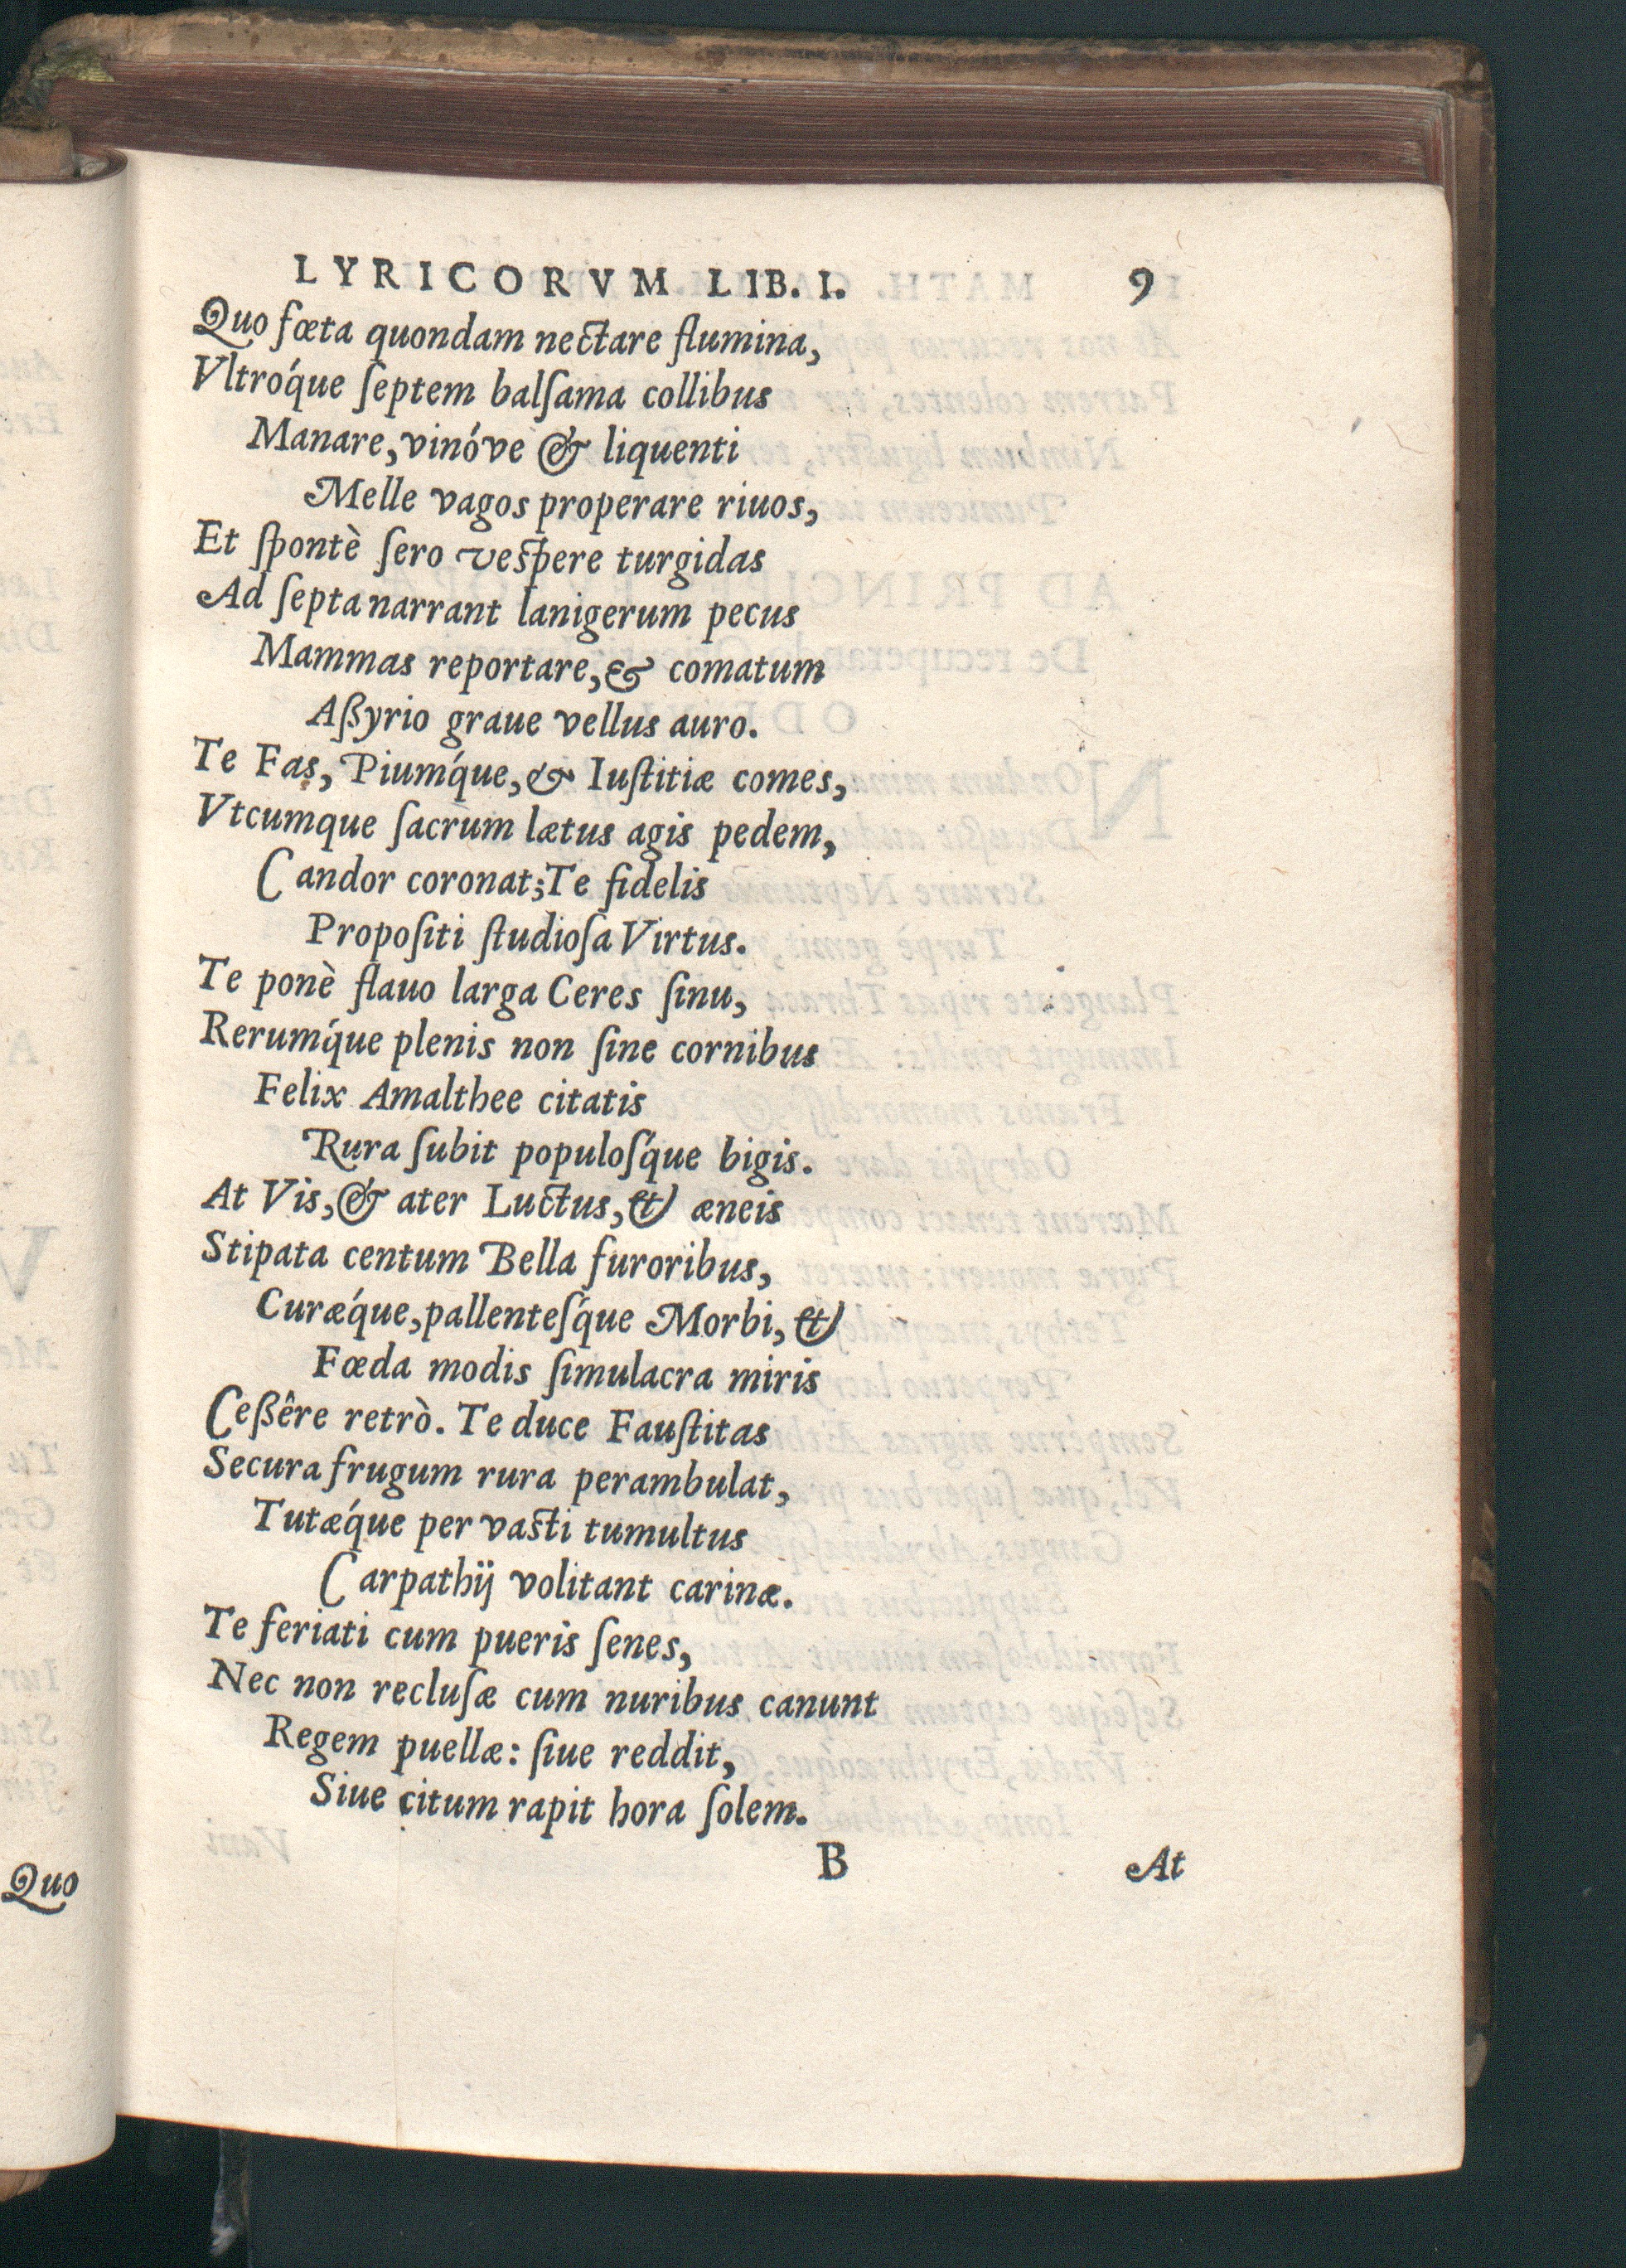 LYRICORVM LIB. I. 9
Quo fœta quondam nectare flumina,
Vltróque ſeptem balſama collibus
Manare, vinóve & liquenti
Melle vagos properare riuos,
Et ſpontè ſero veſpere turgidas
Ad ſepta narrant lanigerum pecus
Mammas reportare, & comatum
Aßyrio graue vellus auro.
Te Fas, Piumq́ue, & Iuſtitiæ comes,
Vtcumque ſacrum lætus agis pedem,
Candor coronat; Te fidelis
Propoſiti ſtudioſa Virtus.
Te ponè flauo larga Ceres ſinu,
Rerumq́ue plenis non ſine cornibus
Felix Amalthee citatis
Rura ſubit populoſq́ue bigis.
At Vis, & ater Luctus, & æneis
Stipata centum Bella furoribus,
Curæq́ue, pallenteſq́ue Morbi, &
Fœda modis ſimulacra miris
Ceßêre retrò. Te duce Fauſtitas
Secura frugum rura perambulat,
Tutæq́ue per vaſti tumultus
Carpathij volitant carinæ.
Te feriati cum pueris ſenes,
Nec non recluſæ cum nuribus canunt
Regem puellæ: ſiue reddit,
Siue citum rapit hora ſolem.
B At
Quo